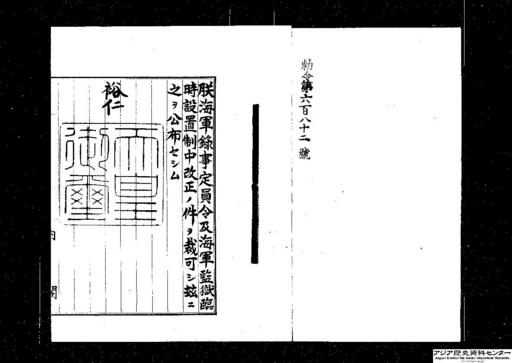 勅令第六百八十二號
朕海軍錄事定員令及海軍監獄臨
時設置制中改正ノ件ヲ裁可シ玆ニ
之ヲ公布セシム
裕仁
天皇御璽
内閣
アジア歴史資料センター
Japan Center for Asian Historical Records